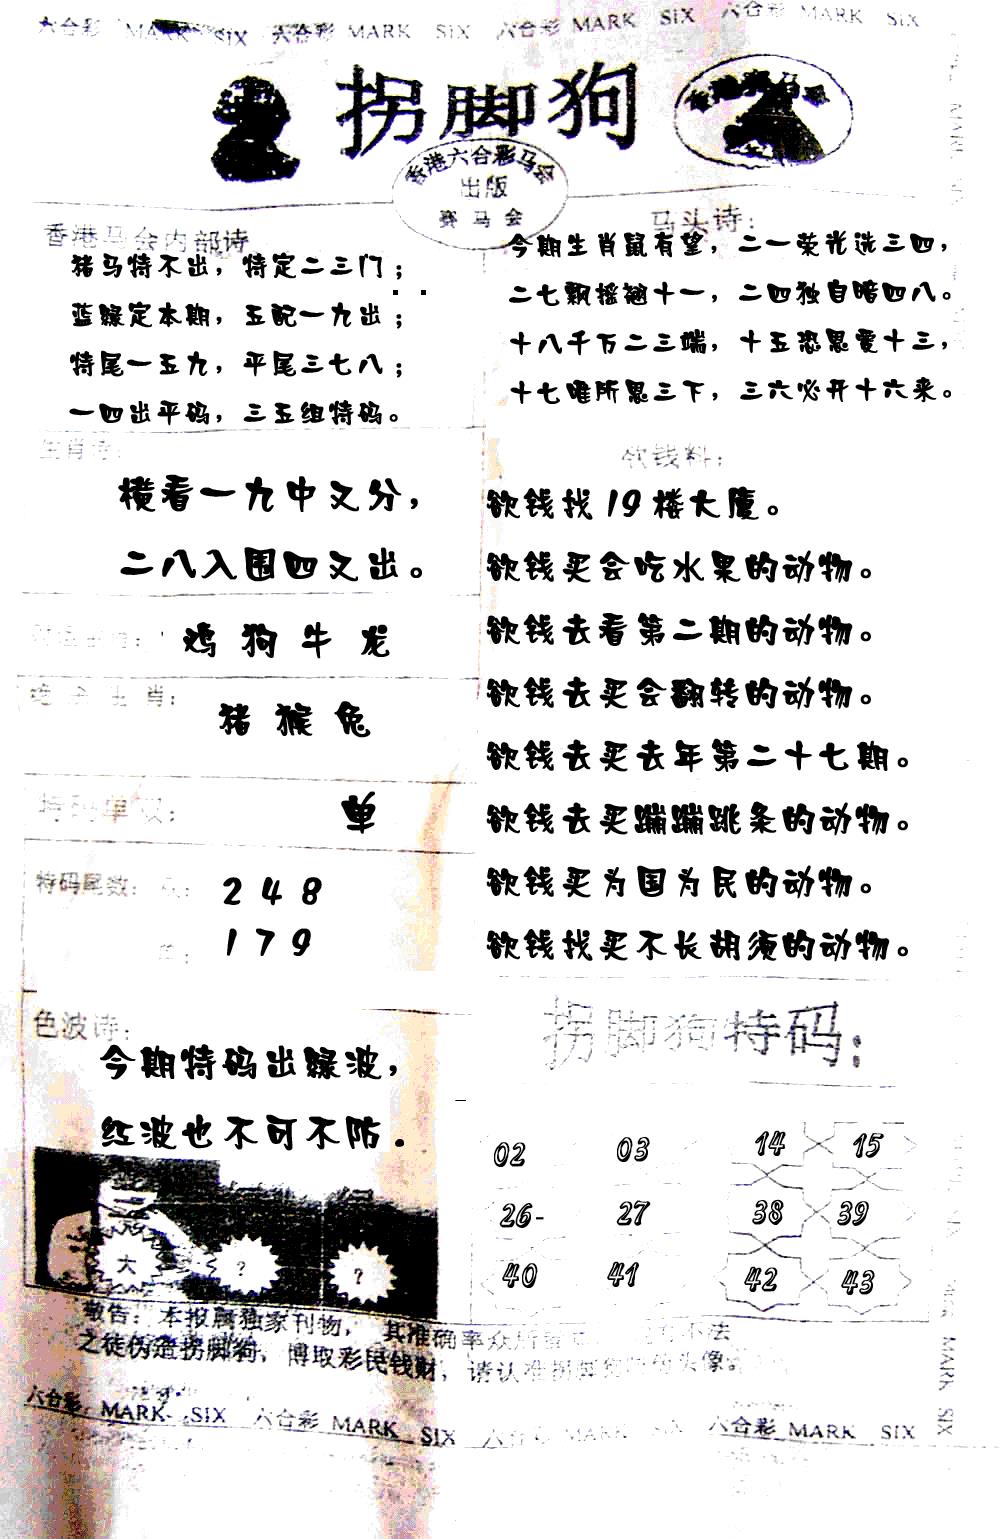 六合彩 MARK SIX 六合彩 MARK SIX 六合彩 MARK SIX 六合彩 MARK SIX
拐脚狗
香港六合彩马会
出版
赛马会
香港马会内部诗
猪马特不出，特定二三门；
蓝绿定本期，五配一九出；
特尾一五九，平尾三七八；
一四出平码，三五组特码。
马头诗：
今期生肖鼠有望，二一荣光选三四，
二七飘摇翘十一，二四独自暗四八。
十八千万二三端，十五恐思爱十三，
十七唯所思三下，三六必开十六来。
生肖诗：
横看一九中又分，
二八入围四又出。
鸡 狗 牛 龙
绝杀生肖：
猪 猴 兔
特码单双：
单
特码尾数：
2 4 8
1 7 9
欲钱料：
欲钱找19楼大厦。
欲钱买会吃水果的动物。
欲钱去看第二期的动物。
欲钱去买会翻转的动物。
欲钱去买去年第二十七期。
欲钱去买蹦蹦跳条的动物。
欲钱买为国为民的动物。
欲钱找买不长胡须的动物。
色波诗：
今期特码出绿波，
红波也不可不防．
大 ？ ？
拐脚狗特码：
02 03 14 15
26- 27 38 39
40 41 42 43
敬告：本报属独家刊物，其准确率众所 不法
之徒伪造拐脚狗，博取彩民钱财，请认准拐脚狗 头像
六合彩 MARK SIX 六合彩 MARK SIX 六合彩 MARK SIX 六合彩 MARK SIX
MARK SIX